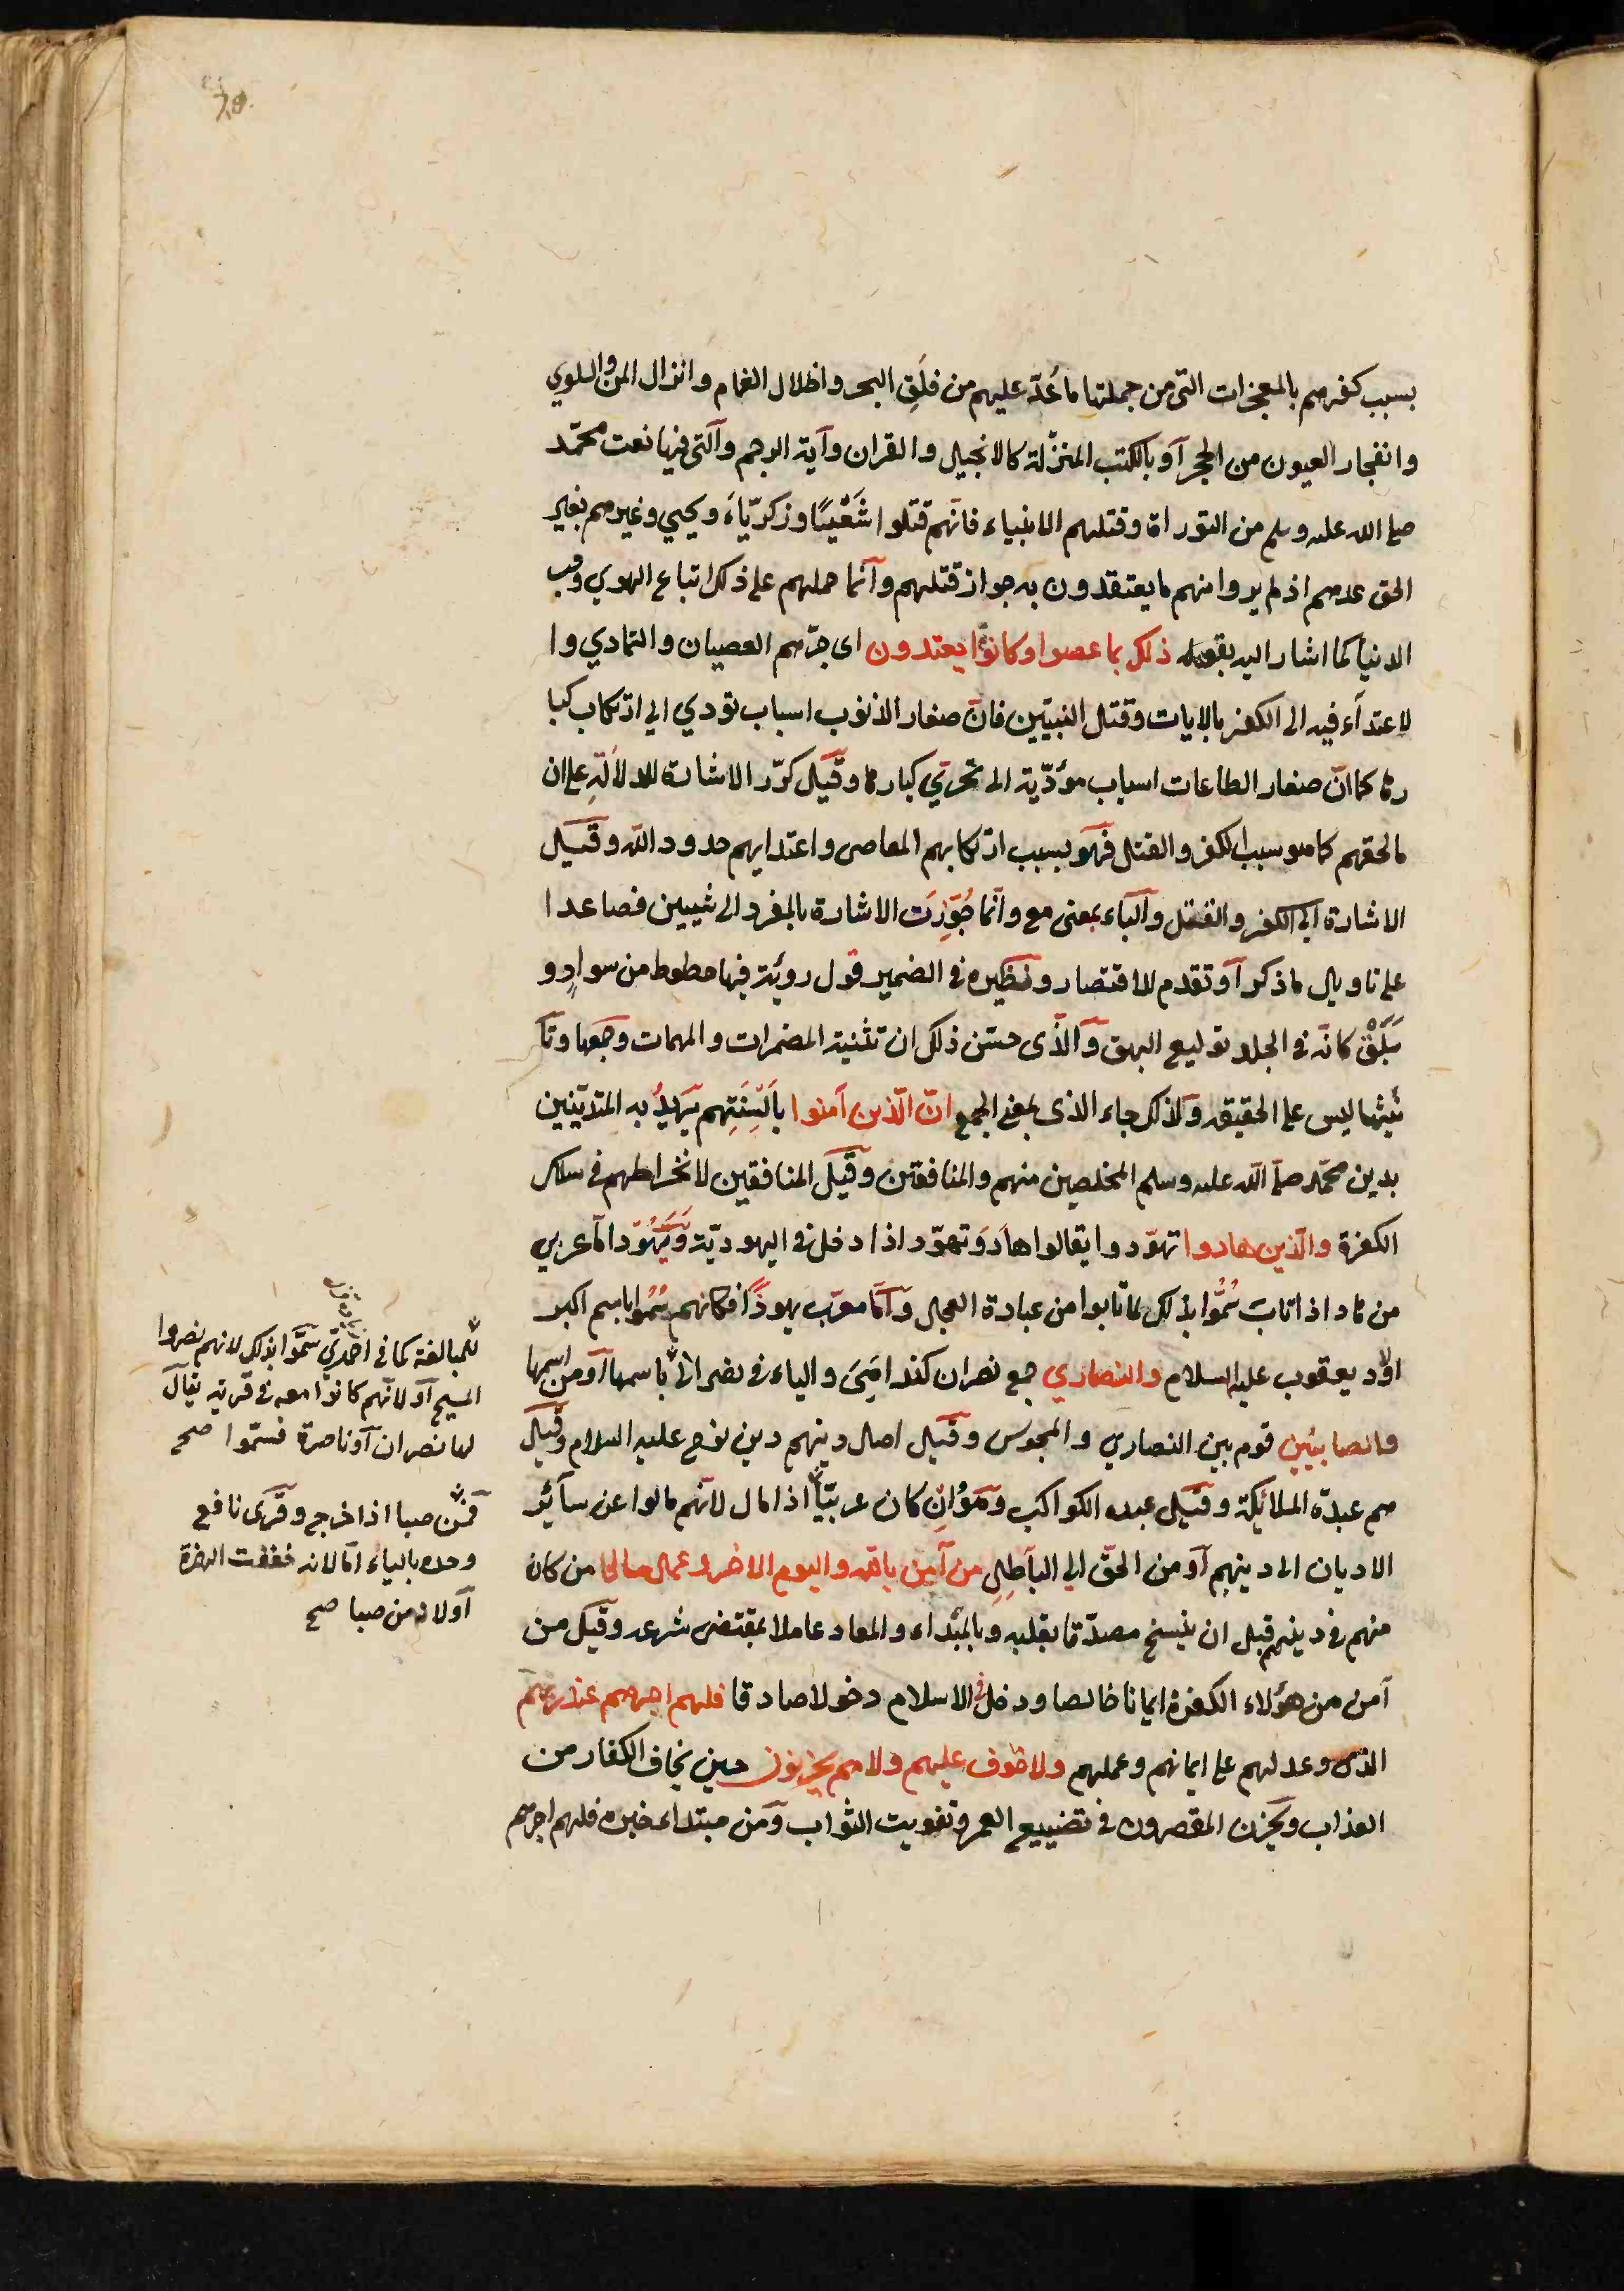 بسبب كفرهم بالمعجزات التى من جملتها ما عُدّ عليهم من فلَق البحر واظلال الغمام وانزال المنّ والسلوي
وانفجار العيون من الحجر آو بالكتب المنزّلة كالانجيل والقران وآية الرجم والتى فيها نعت محمّد
صلى الله عليه وسلم من التوراة وقتلهم الانبياء فانّهم قتلوا شَعْيَا وزكريّاءَ ويحيي وغيرهم بغير
الحق عندهم اذ لم يروا منهم ما يعتقدون به جواز قتلهم وآنما حملهم على ذلك اتباع الهوي وحب
الدنيا كما اشار اليه بقوله ذلك بما عصوا وكانوا يعتدون اى جرّهم العصيان والتمادي وا
لاعتدآء فيه الى الكفر بالايات وقتل النبيّين فانّ صغار الذنوب اسباب تؤدي الي ارتكاب كبا
رها كما انّ صغار الطاعات اسباب مؤدّية الى تحرّي كبارها وقيل كرّر الاشارة للدلالة على ان
مالحقهم كما هو بسبب الكفر والقتل فهو بسبب ارتكابهم المعاصى واعتدايهم حدود الله وقيل
الاشارة الى الكفر والقتل والبآء بمعنى مع وآنما جُوّزت الاشارة بالمفرد الى شيين فصاعدا
على تاويل ما ذكر آو تقدم للاقتصار ونظيره فى الضمير قول روبة فيها خطوط من سوادٍ و
بَلَقْ كانّه فى الجلد توليع البهق والّذى حسّن ذلك ان تثنية المضمرات والمبهمات وجمعها وتآ
نيثها ليس على الحقيقه ولذلك جاء الذى بمعنى الجمع انّ الّذين آمنوا بالسِنَتِهم يريدُ به المتديّنين
بدين محمّد صلى الله عليه وسلم المخلصين منهم والمنافقين وقيل المنافقين لانخراطهم فى سلك
الكفرة والّذين هادوا تهوّدوا يقالوا هادَ وتهوّد اذا دخل فى اليهوديّة ويَهُوَد امّا عربي
من هاد اذا تابَ سُمُّوا بذلك لما تابوا من عبادة العجل وآمّا معرّب يهوذَا فكانهم سُمُّوا باسم اكبر
اولاد يعقوب عليه السلام والنصاري جمع نصران كندامَىَ والياء فى نصرانيّ باسمها آو من اسمها
والصابئين قوم بين النصاري والمجوس وقيل اصل دينهم دين نوح عليه السلام وقيل
هم عبدة الملائكة وقيل عبدة الكواكب وهوَ ان كان عربيّا اذا مال لانّهم مالوا عن سآئر
الاديان الى دينهم آو من الحقّ الي الباطل من آمن بالله واليوم الاخر وعمل صالحا من كان
منهم فى دينهم قبل ان ينسخ مصدّقا بقلبه وبالمبداء والمعاد عاملا بمقتضى شرعه وقيل من
آمن من هؤلاء الكفرة ايمانا خالصا ودخل فى الاسلام دخولا صادقا فلهم اجرهم عند ربهم
الذى وعد لهم على ايمانهم وعملهم ولا خوف عليهم ولا هم يحزنون حين يخاف الكفار من
العذاب ويحزن المقصرون فى تضييع العمر وتفويت الثواب ومَن مبتداء خبره فلهم اجرهم
للمبالغة كما فى احمريّ سمّوا بذلك لانهم نصروا
المسيح آو لانّهم كانوا معه فى قرية يقال
لها نصران آو ناصرة فسمّوا صح
فمن صبا اذا خرج وقرى نافع
وحده بالياء امّا لانه خففت الهمزة
آو لانه من صبا صح